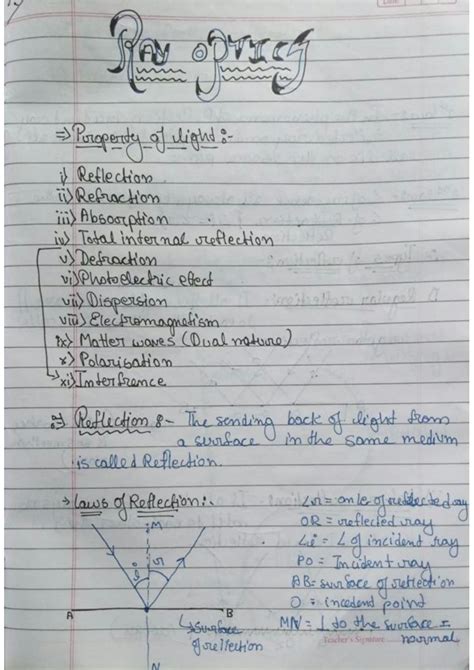 RAY OPTICS
⇒ Property of light:-
i) Reflection
ii) Refraction
iii) Absorption
iv) Total internal reflection
v) Defraction
vi) Photoelectric effect
vii) Dispersion
viii) Electromagnetism
ix) Matter waves (Dual nature)
x) Polarisation
xi) Interfrence
⇒ Reflection :- The sending back of light from
a surface in the same medium
is called Reflection.
→ Laws of Reflection:-
M
i r
A O B
N
↳ surface
of reflection
∠r = angle of reflected ray
OR = reflected ray
∠i = ∠ of incident ray
PO = Incident ray
AB = surface of reflection
O = incedent point
MN = ⊥ to the surface =
normal
Teacher's Signature